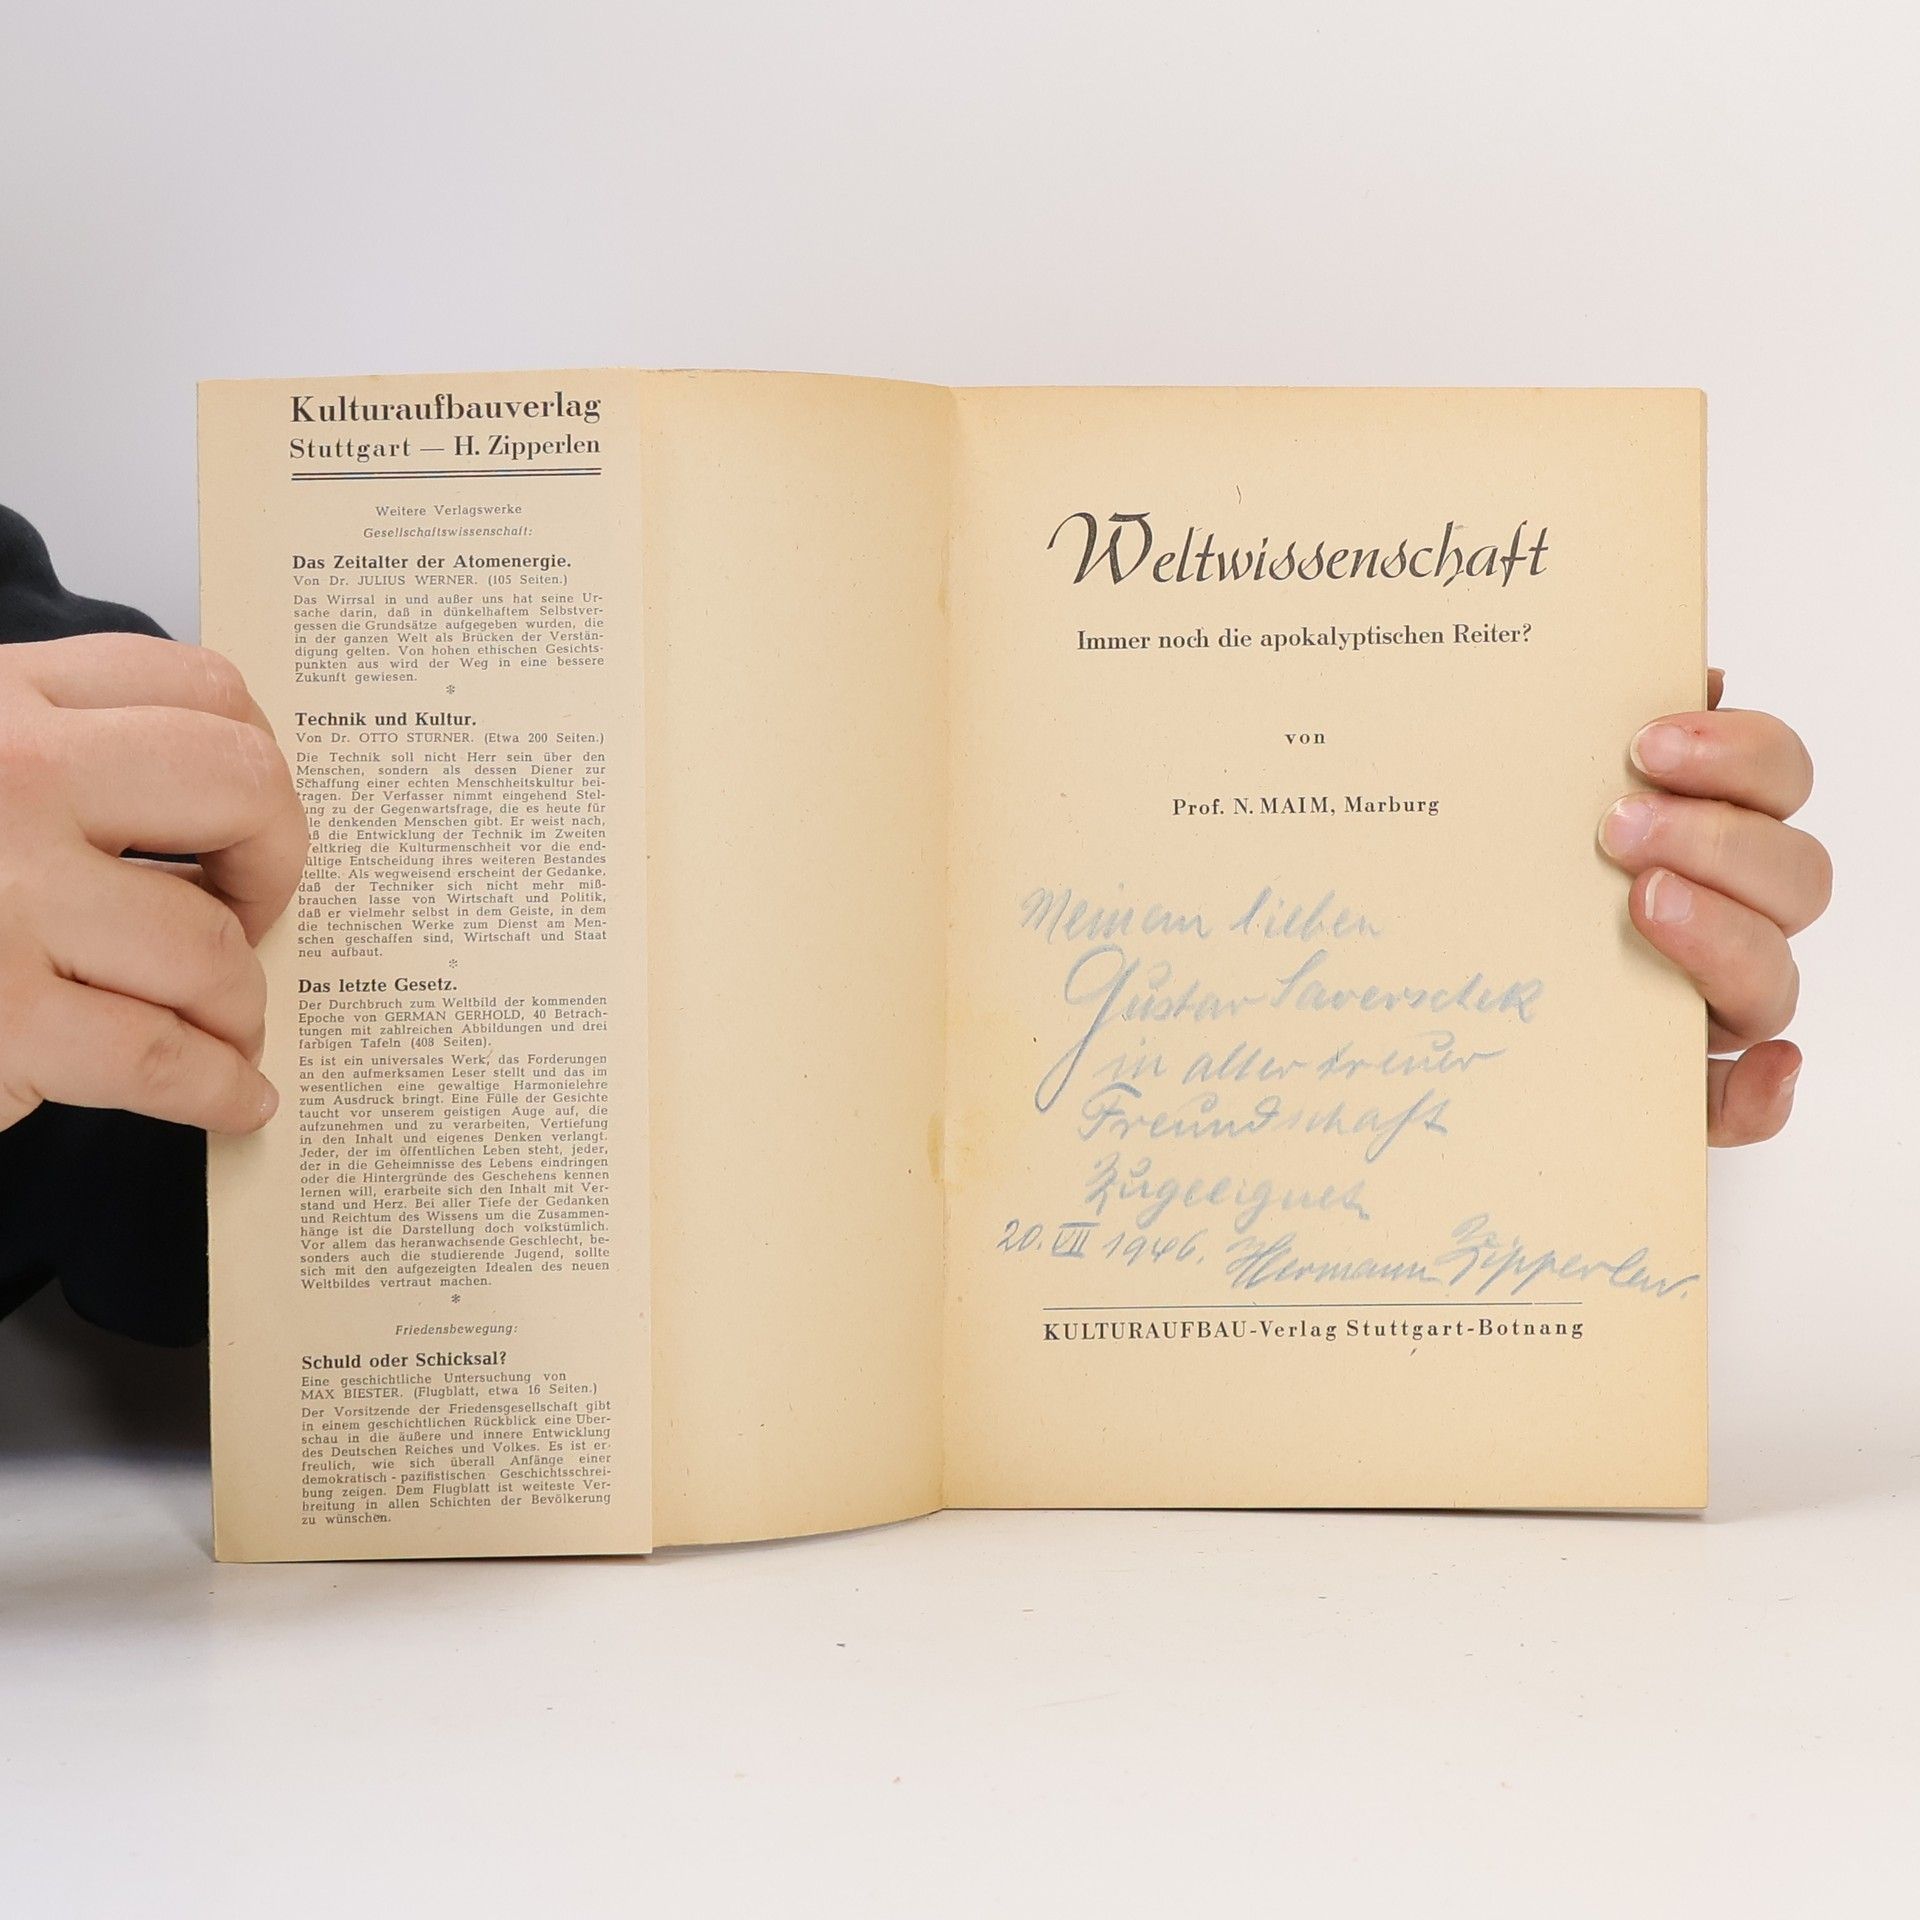 Kulturaufbauverlag
Stuttgart — H. Zipperlen
Weitere Verlagswerke
Gesellschaftswissenschaft:
Das Zeitalter der Atomenergie.
Von Dr. JULIUS WERNER. (105 Seiten.)
Das Wirrsal in und außer uns hat seine Ur-
sache darin, daß in dünkelhaftem Selbstver-
gessen die Grundsätze aufgegeben wurden, die
in der ganzen Welt als Brücken der Verstän-
digung gelten. Von hohen ethischen Gesichts-
punkten aus wird der Weg in eine bessere
Zukunft gewiesen.
*
Technik und Kultur.
Von Dr. OTTO STURNER. (Etwa 200 Seiten.)
Die Technik soll nicht Herr sein über den
Menschen, sondern als dessen Diener zur
Schaffung einer echten Menschheitskultur bei-
tragen. Der Verfasser nimmt eingehend Stel-
ung zu der Gegenwartsfrage, die es heute für
le denkenden Menschen gibt. Er weist nach,
aß die Entwicklung der Technik im Zweiten
Weltkrieg die Kulturmenschheit vor die end-
ültige Entscheidung ihres weiteren Bestandes
stellte. Als wegweisend erscheint der Gedanke,
daß der Techniker sich nicht mehr miß-
brauchen lasse von Wirtschaft und Politik,
daß er vielmehr selbst in dem Geiste, in dem
die technischen Werke zum Dienst am Men-
schen geschaffen sind, Wirtschaft und Staat
neu aufbaut.
*
Das letzte Gesetz.
Der Durchbruch zum Weltbild der kommenden
Epoche von GERMAN GERHOLD, 40 Betrach-
tungen mit zahlreichen Abbildungen und drei
farbigen Tafeln (408 Seiten).
Es ist ein universales Werk, das Forderungen
an den aufmerksamen Leser stellt und das im
wesentlichen eine gewaltige Harmonielehre
zum Ausdruck bringt. Eine Fülle der Gesichte
taucht vor unserem geistigen Auge auf, die
aufzunehmen und zu verarbeiten, Vertiefung
in den Inhalt und eigenes Denken verlangt.
Jeder, der im öffentlichen Leben steht, jeder,
der in die Geheimnisse des Lebens eindringen
oder die Hintergründe des Geschehens kennen
lernen will, erarbeite sich den Inhalt mit Ver-
stand und Herz. Bei aller Tiefe der Gedanken
und Reichtum des Wissens um die Zusammen-
hänge ist die Darstellung doch volkstümlich.
Vor allem das heranwachsende Geschlecht, be-
sonders auch die studierende Jugend, sollte
sich mit den aufgezeigten Idealen des neuen
Weltbildes vertraut machen.
*
Friedensbewegung:
Schuld oder Schicksal?
Eine geschichtliche Untersuchung von
MAX BIESTER. (Flugblatt, etwa 16 Seiten.)
Der Vorsitzende der Friedensgesellschaft gibt
in einem geschichtlichen Rückblick eine Über-
schau in die äußere und innere Entwicklung
des Deutschen Reiches und Volkes. Es ist er-
freulich, wie sich überall Anfänge einer
demokratisch-pazifistischen Geschichtsschrei-
bung zeigen. Dem Flugblatt ist weiteste Ver-
breitung in allen Schichten der Bevölkerung
zu wünschen.
Weltwissenschaft
Immer noch die apokalyptischen Reiter?
von
Prof. N. MAIM, Marburg
Meinem lieben
Gustav
in alter treuer
Freundschaft
zugeeignet
20. VII 1946. Hermann Zipperlen.
KULTURAUFBAU-Verlag Stuttgart-Botnang